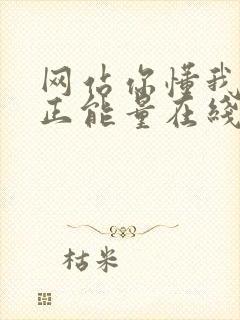 网站你懂我
正能量在线
枯米